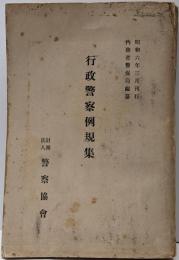 昭和六年三月刊行
内務省警保局編纂
行政警察例規集
財團法人 警察協會